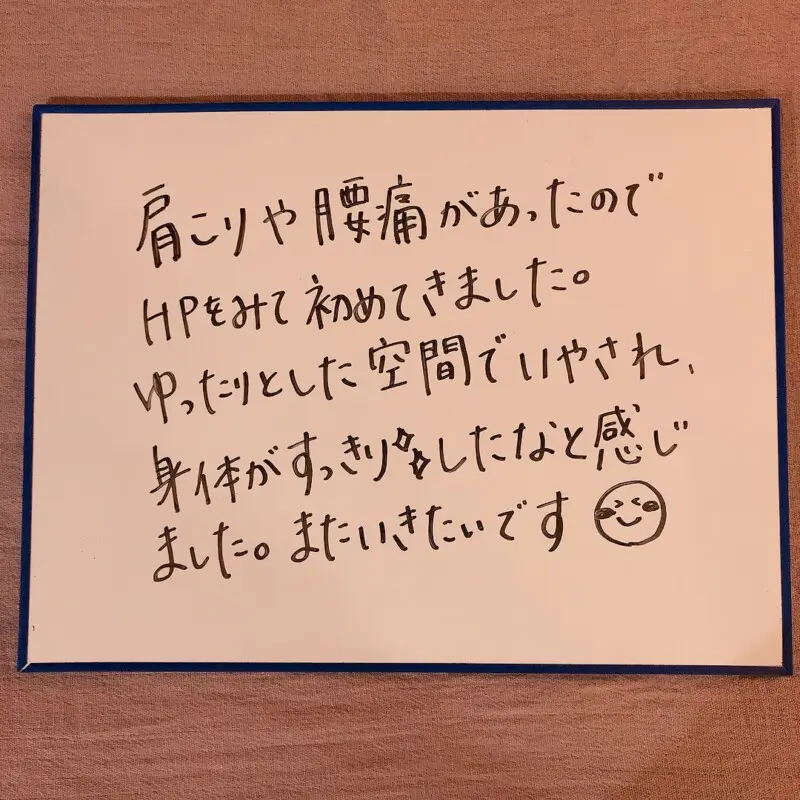 肩こりや腰痛があったので
HPをみて初めてきました。
ゆったりとした空間でいやされ、
身体がすっきり✨したなと感じ
ました。またいきたいです